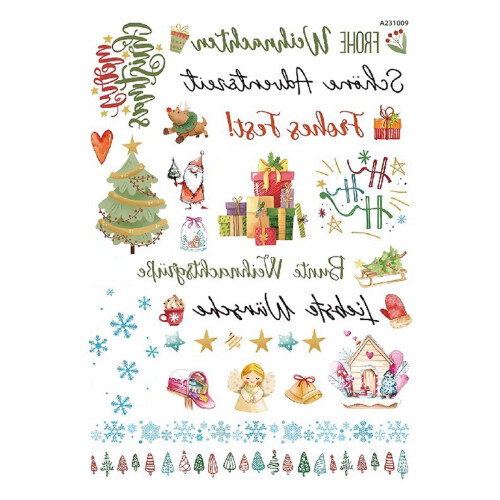 A231009
FROHE Weihnachten
Merry
Christmas
Schöne Adventszeit
Frohes Fest!
Bunte Weihnachtsgrüße
Liebste Wünsche